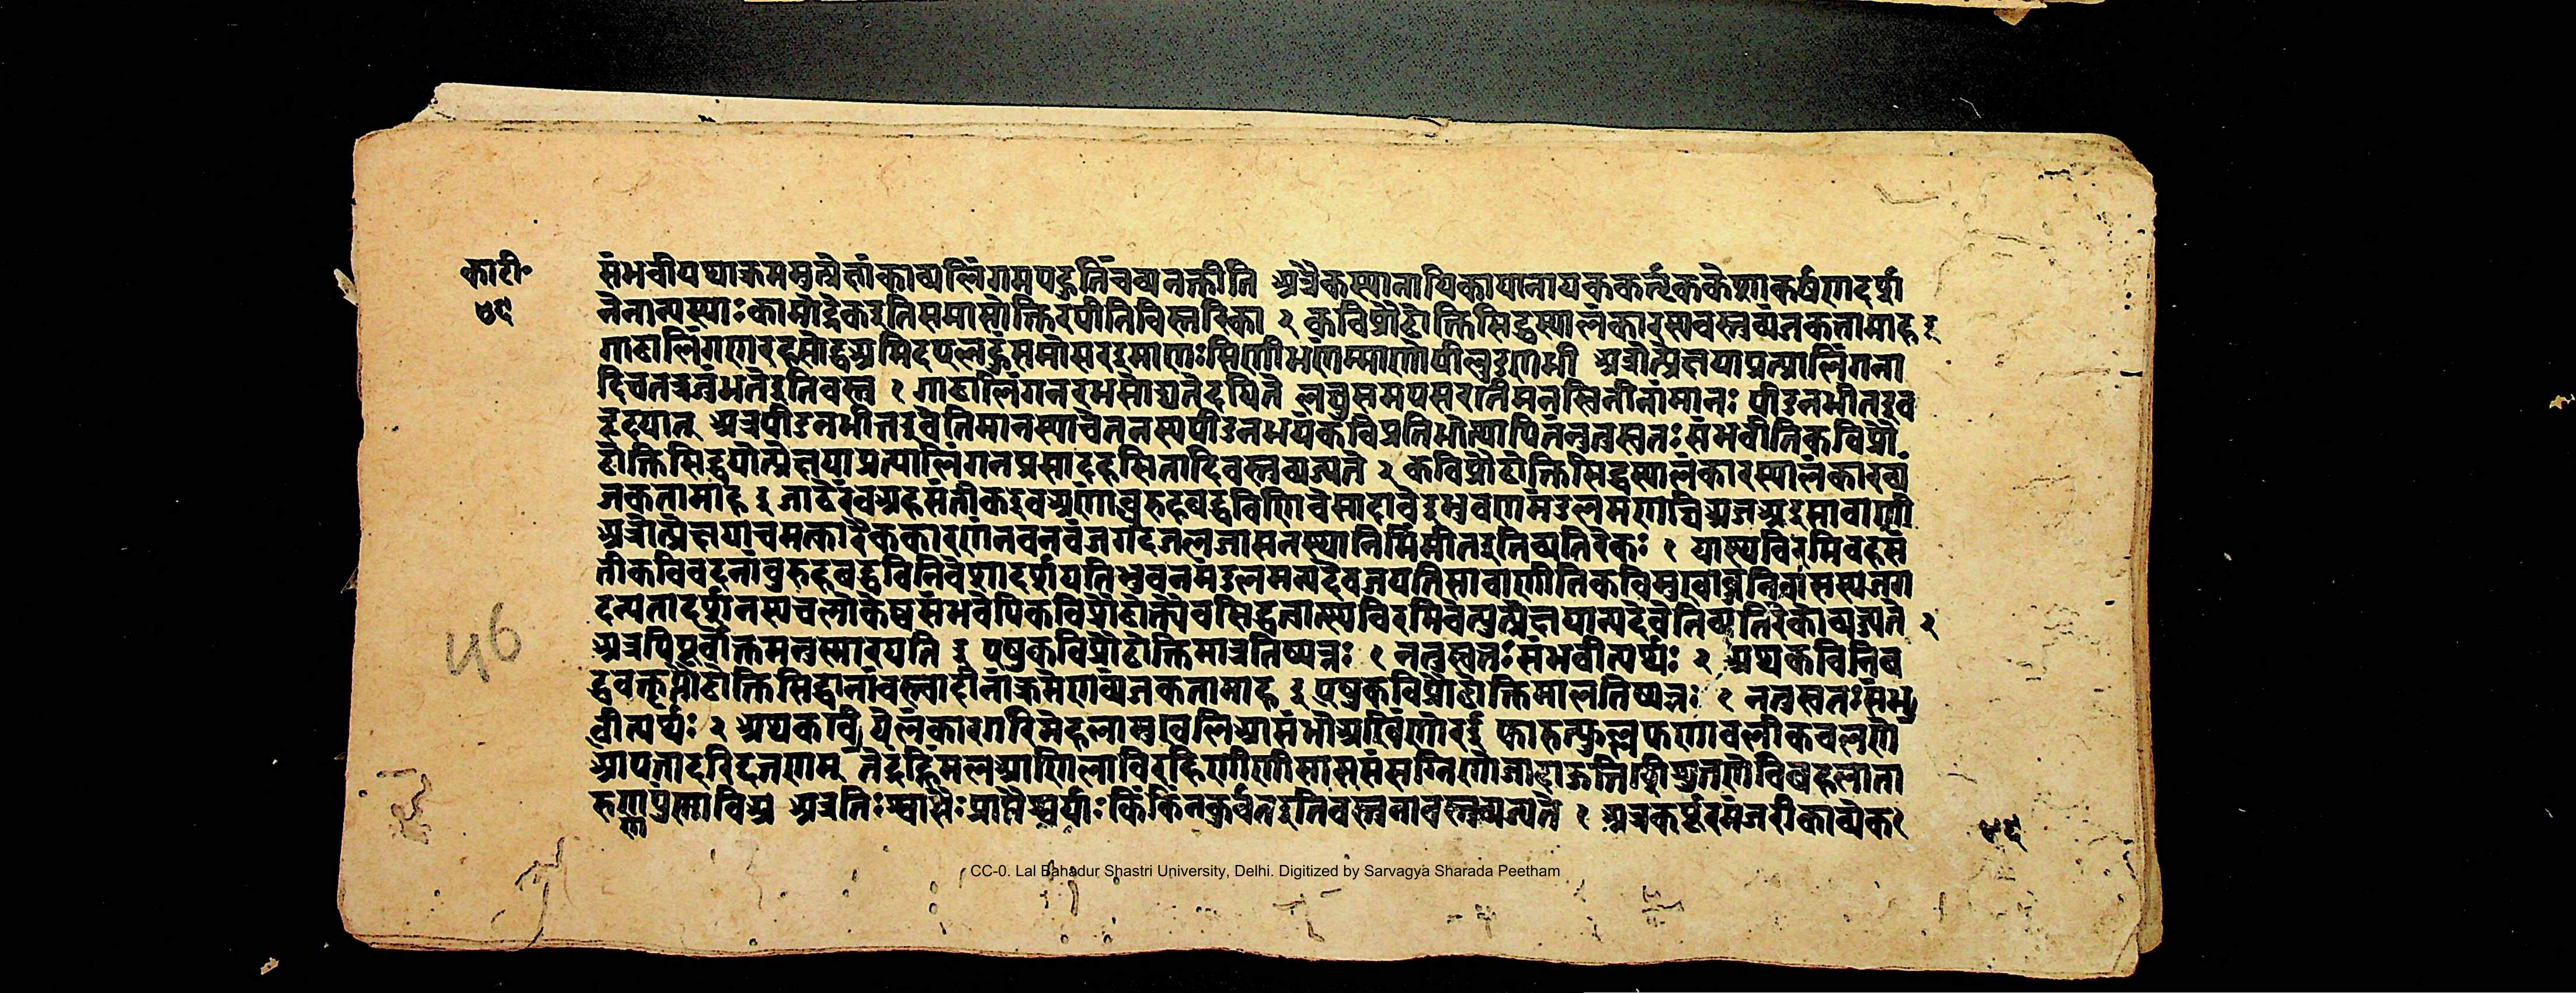 काटी॰
४९
संभवीयथाक्रममुत्प्रेक्षांकाव्यलिंगमपह्नुतिंचव्यनक्तीति अत्रैकस्यानायिकायानायककर्तृककेशाकर्षणदर्श
नेनान्यस्याःकामोद्रेकइतिसमासोक्तिरपीतिविस्तरिका २ कविप्रौढोक्तिसिद्धस्यालंकारस्यवस्तुव्यंजकतामाह इ
गाढालिंगणरहसोद्धअमिदयलहुंसमोसरइमाणः अत्रोत्प्रेक्षयाप्रत्यालिंगना
दिचतत्रजृंभतेइतिवस्तु १ गाढालिंगनरभसोद्यतेदयिते लघुसमपसरतिमनस्विनीनांमानः पीडनभीतइव
हृदयात् अत्रपीडनभीतइवेतिमानस्याचेतनस्यपीडनभयंकविप्रतिभोत्थापितंनतुस्वतःसंभवीतिकविप्रौ
ढोक्तिसिद्धयोत्प्रेक्षयाप्रत्यालिंगनप्रसादहसितादिवस्तुव्यज्यते २ कविप्रौढोक्तिसिद्धस्यालंकारस्यालंकारव्यं
जकतामाह इ जाठेरंवअहसंतीकइवअणांबुरुहबद्धविणिवेसादावेइभुवणमंडलमणंचिअजअइसावाणी
अत्रोत्प्रेक्षयाचमत्कारैककारणंनवनवंजगदजलजासनस्थानिर्मिमीतइतिव्यतिरेकः १ यास्थविरमिवहसं
तीकविवदनांबुरुहबद्धविनिवेशादर्शयतिभुवनमंडलमन्यदेवजयतिसावाणीतिकविमुखांबुजनिवासस्यजग
दन्यतादर्शनस्यचलोकेष्वसंभवेपिकविप्रौढोक्त्यैवसिद्धत्वात्स्थविरमिवेत्युत्प्रेक्षयान्यदेवेतिव्यतिरेकोव्यज्यते २
अत्रापिपूर्वोक्तमनुस्मारयति इ एषुकविप्रौढोक्तिमात्रनिष्पन्नः १ नतुस्वतःसंभवीत्यर्थः २ अथकविनिब
द्धवक्तृप्रौढोक्तिसिद्धानांवस्त्वादीनांक्रमेणव्यंजकतामाह इ एषुकविप्रौढोक्तिमात्रनिष्पन्नः १ नतुस्वतःसंभ
वीत्यर्थः २ फारुत्फुल्लफणावलीकवलणे
अत्रनिःश्वासैःप्राप्तैश्वर्याःकिंकिंनकुर्वंतइतिवस्तुनावस्तुव्यज्यते १ अत्रकर्पूरमंजरीकाव्येक१
४९
46
CC-0. Lal Bahadur Shastri University, Delhi. Digitized by Sarvagya Sharada Peetham